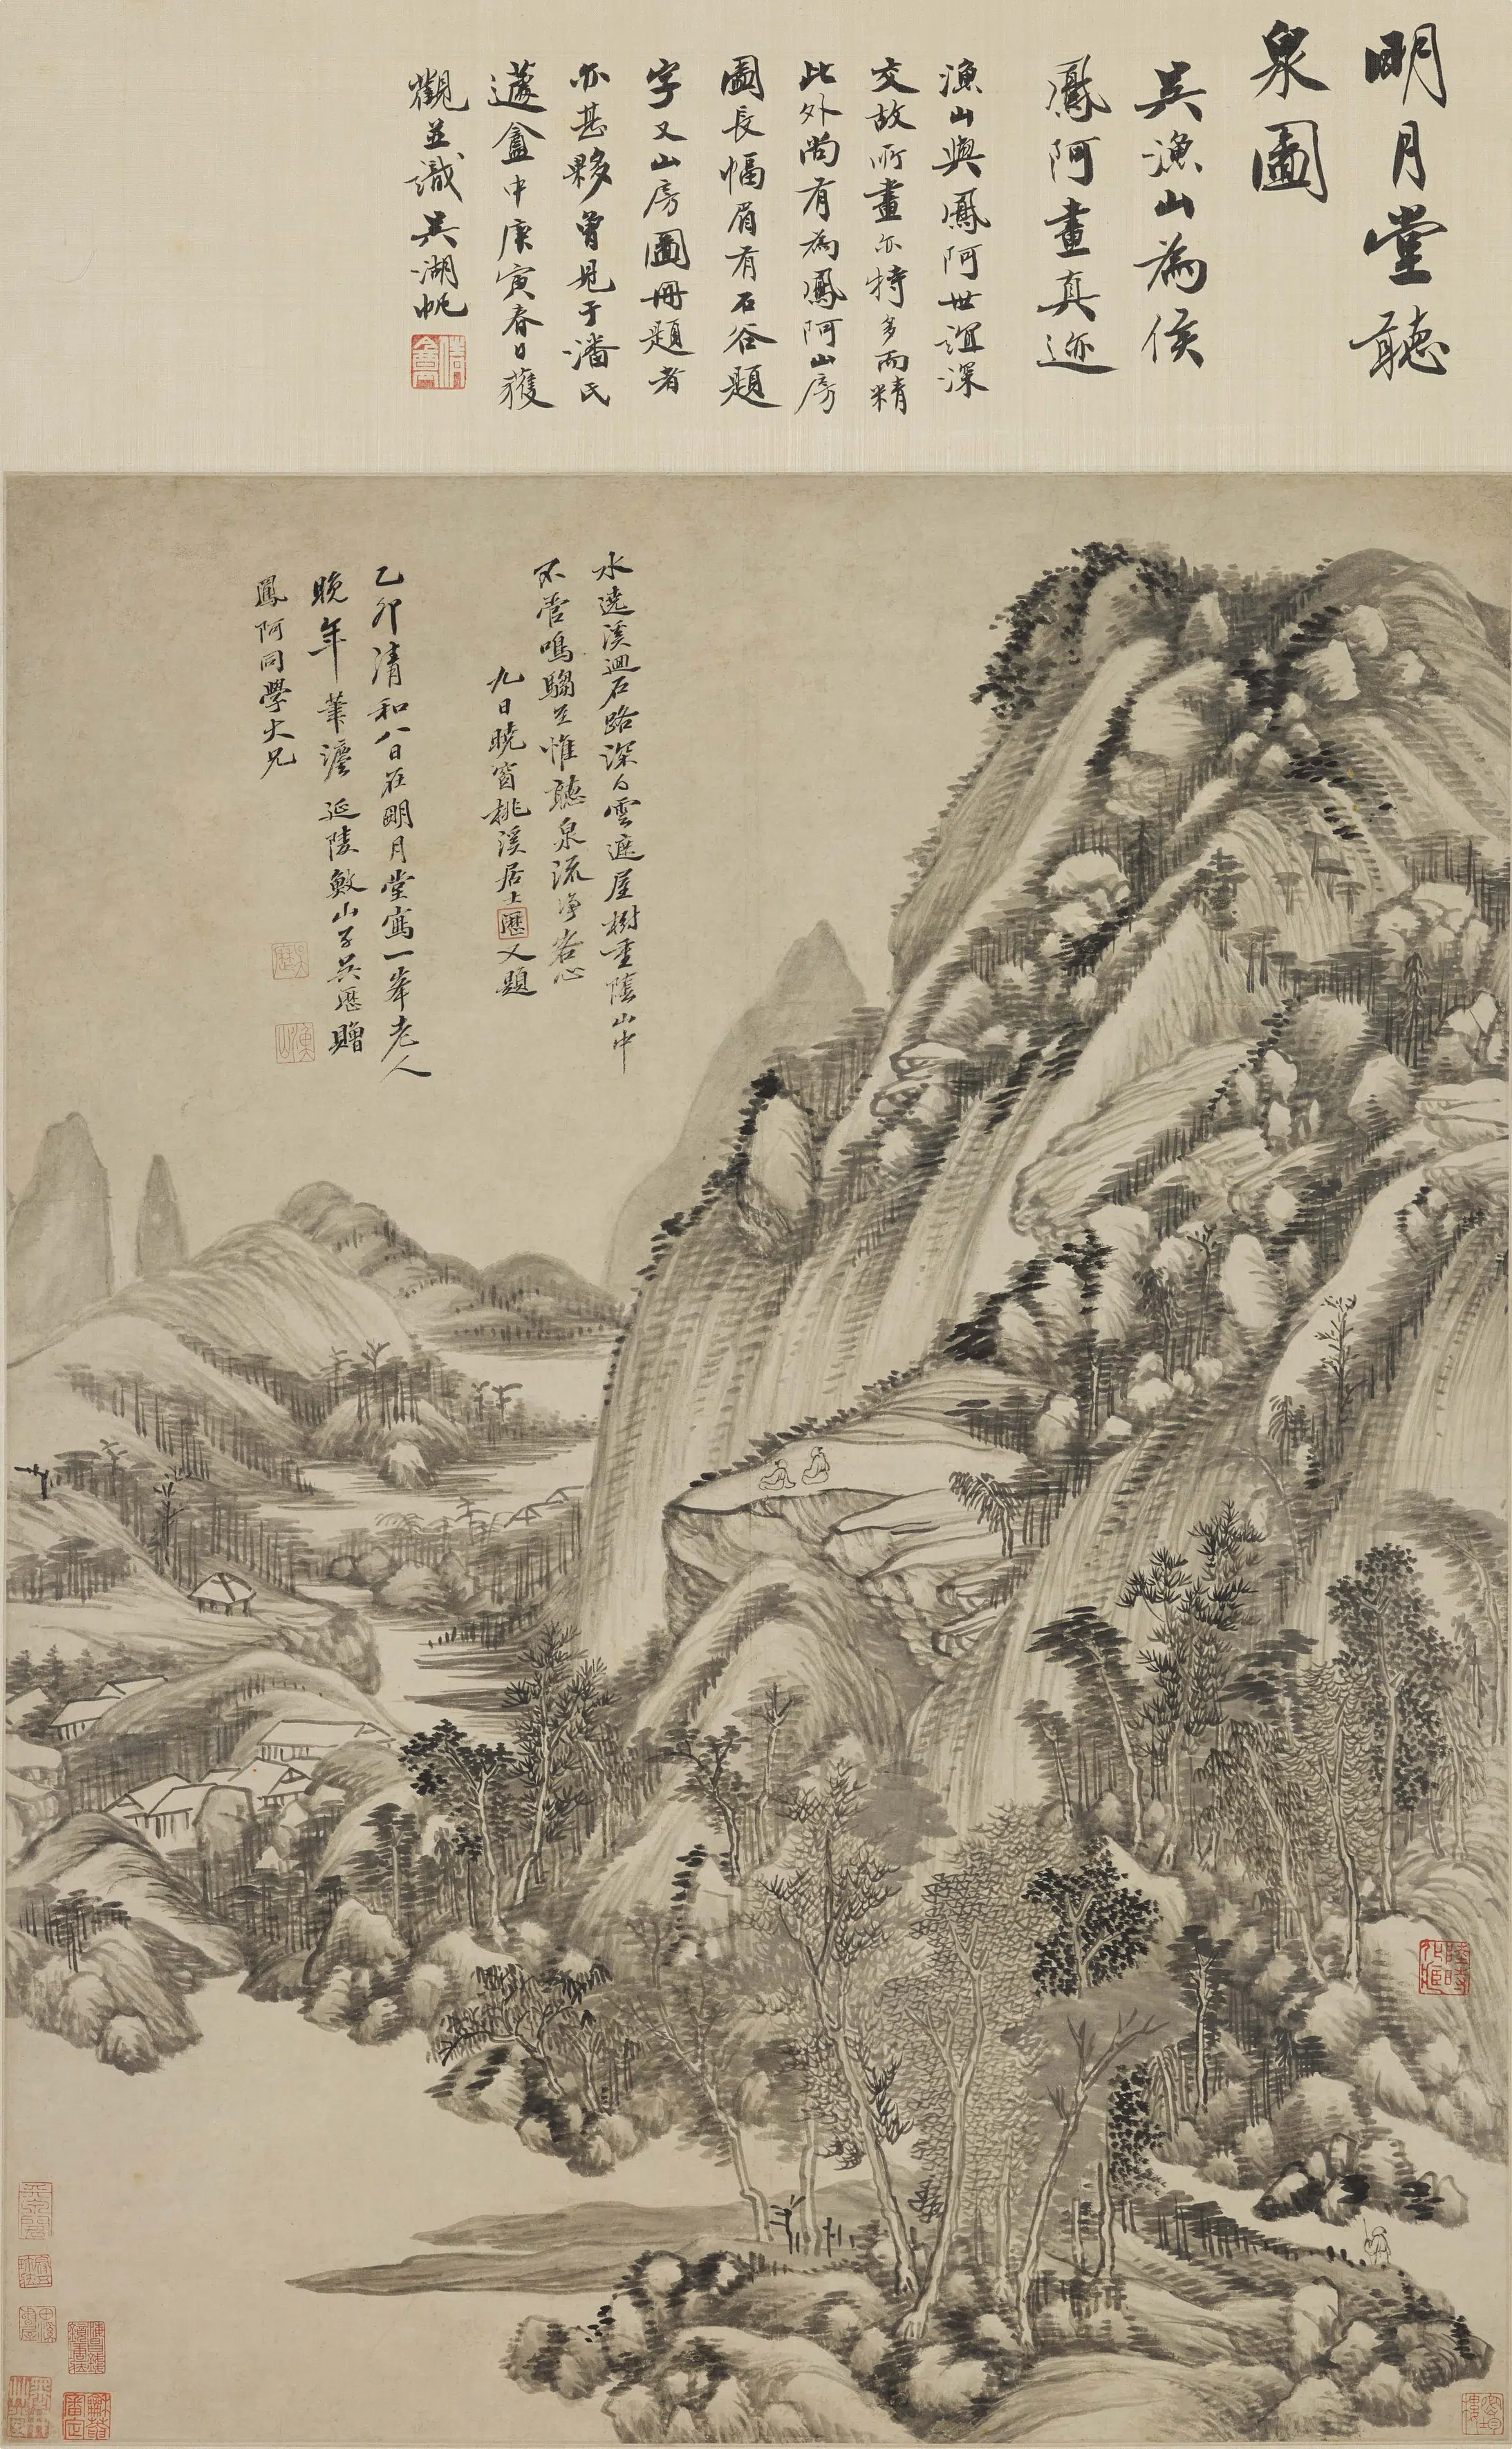 明月堂聽
泉圖
吳漁山為侯
鳳阿畫真迹
漁山與鳳阿世誼深
交故所畫亦特多而精
此外尚有為鳳阿山房
圖長幅眉有石谷題
字又山房圖冊題者
亦甚夥曾見于潘氏
蘧盦中庚寅春日獲
觀並識吳湖帆
水遶溪迴石路深白雲遮屋樹重陰山中
不管鳴騶至惟聽泉流淨客心
九日曉窗桃溪居士歷又題
乙卯清和八日在明月堂寫一峯老人
晚年筆灋延陵敤山子吳歷贈
鳳阿同學大兄